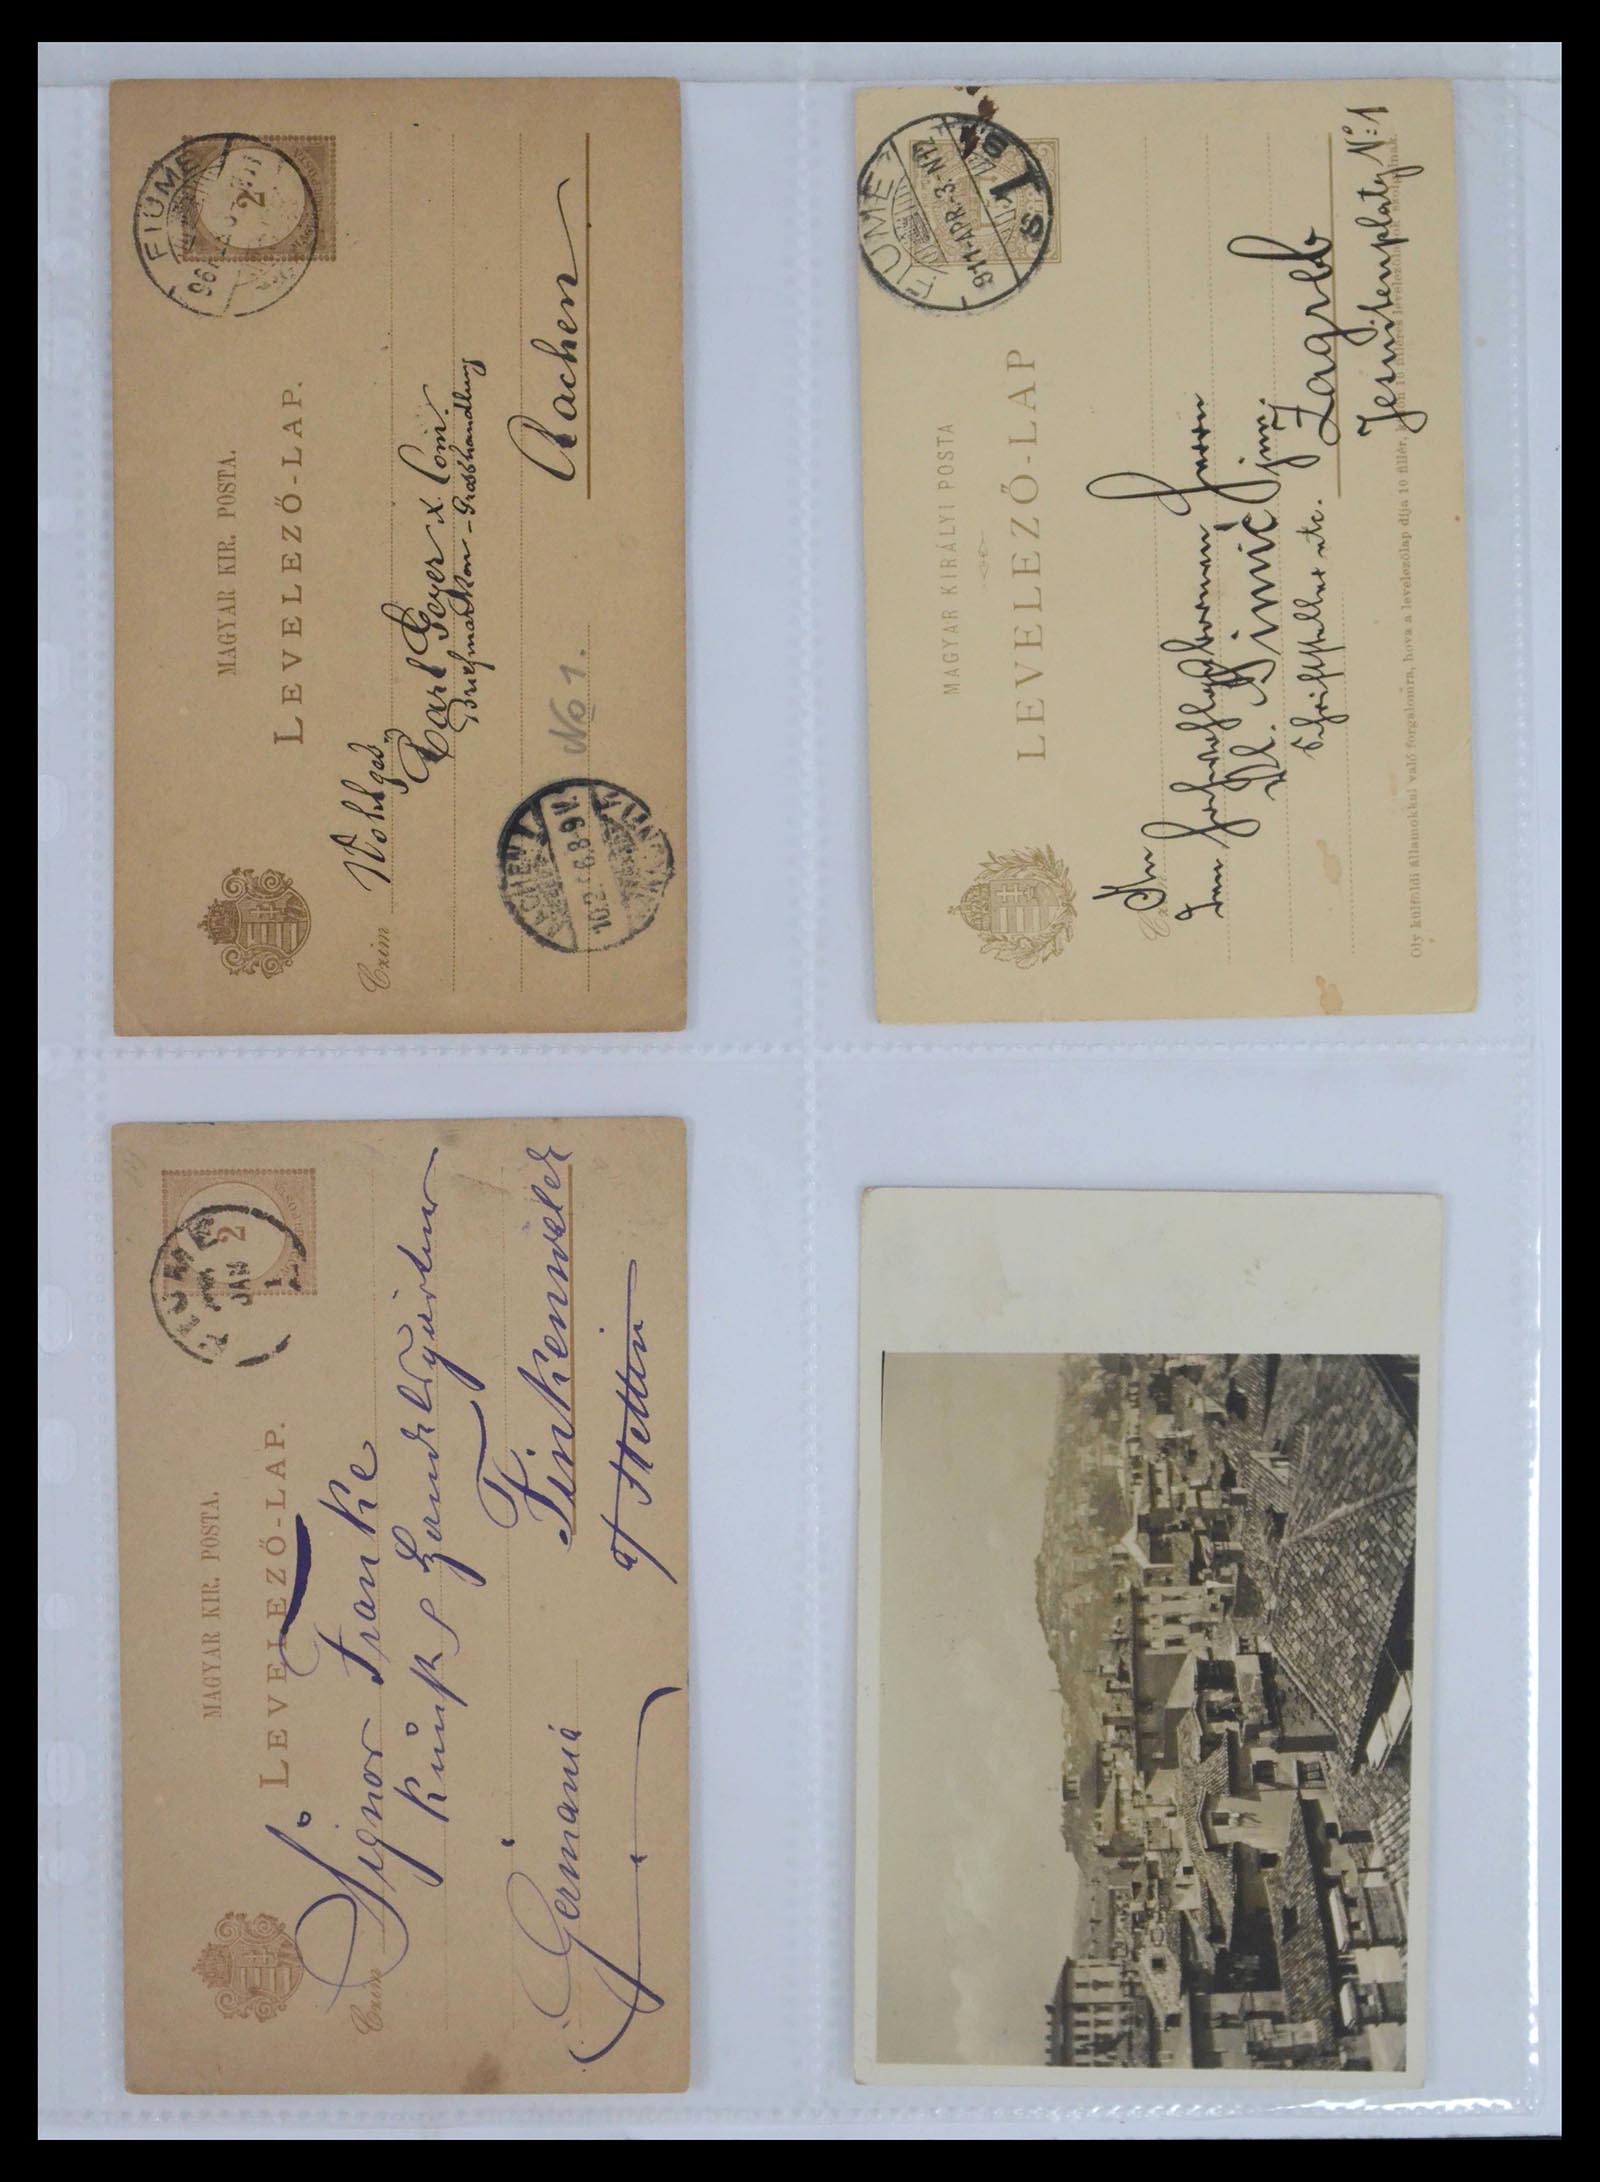 MAGYAR KIR. POSTA.
LEVELEZŐ-LAP.
FIUME
2
Czim
Wohlgeb
Carl Geyer & Comp.
Briefmarken-Grosshandlung
Aachen
No 1.
AACHEN
MAGYAR KIRÁLYI POSTA
LEVELEZŐ-LAP
FIUME
911 APR.-3. N12
S 1 S
An
Seine Hochwohlgeboren Herrn
Vl. Simić jun.
Schriftsteller etc. Zagreb
Jesuitenplatz No: 1
Oly külföldi államokkal való forgalomra, hova a levelezőlap díja 10 fillér,
MAGYAR KIR. POSTA.
LEVELEZŐ-LAP.
FIUME
JAN
2
Czim
Signor Franke
Kunst & Handelsgärtner
Finkenwalde
Germania
a/ Stettin